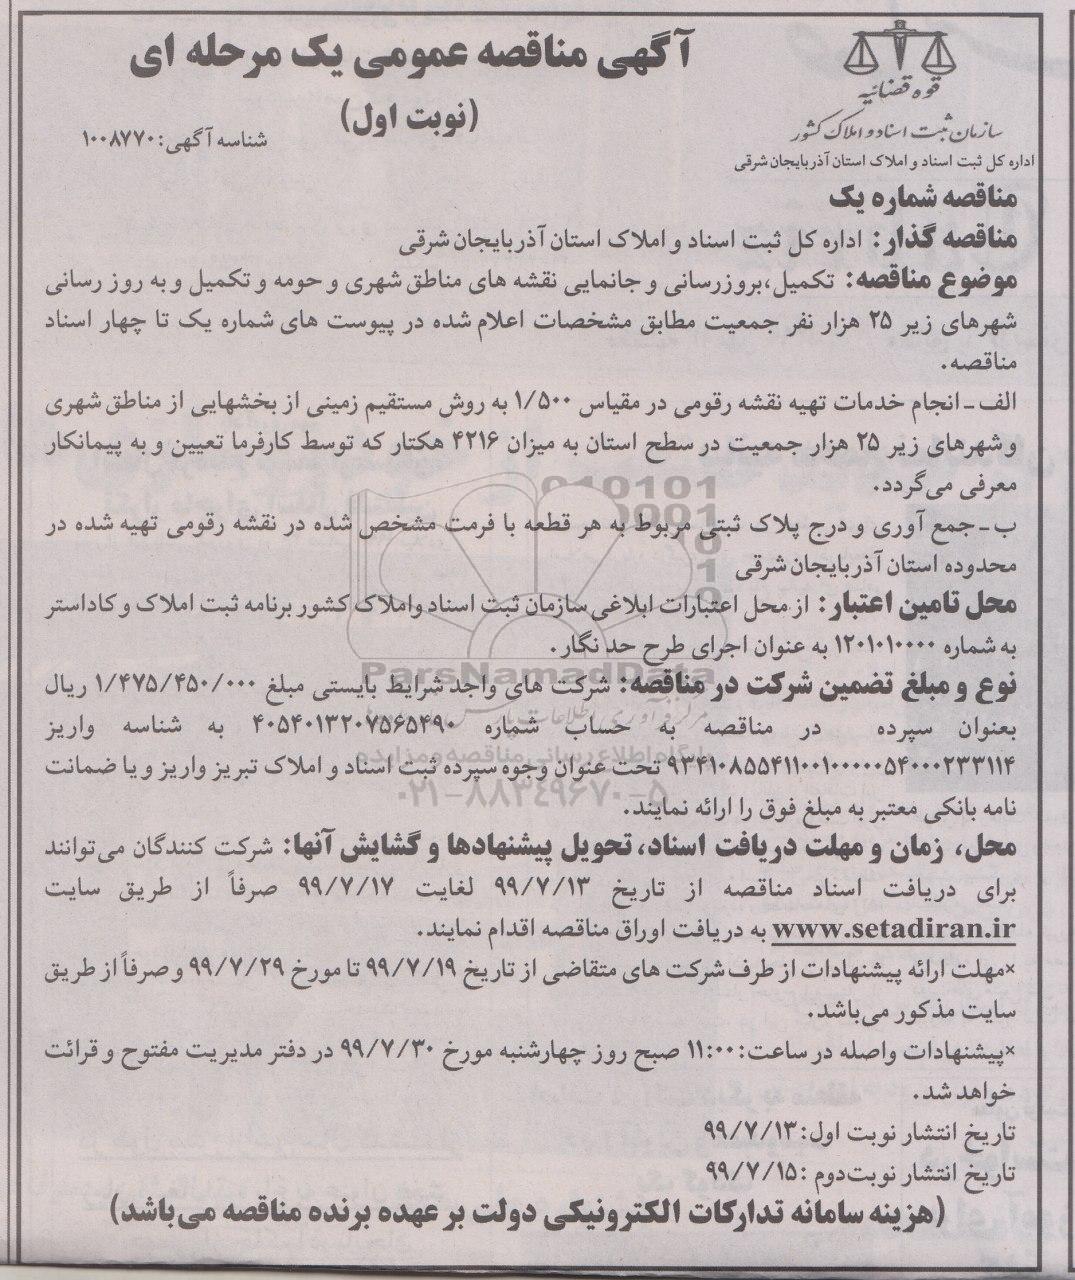 آگهی مناقصه عمومی یک مرحله ای
(نوبت اول)
شناسه آگهی: ۱۰۰۸۷۷۰
قوه قضائیه
سازمان ثبت اسناد و املاک کشور
اداره کل ثبت اسناد و املاک استان آذربایجان شرقی
مناقصه شماره یک
مناقصه گذار: اداره کل ثبت اسناد و املاک استان آذربایجان شرقی
موضوع مناقصه: تکمیل،بروزرسانی و جانمایی نقشه های مناطق شهری و حومه و تکمیل و به روز رسانی
شهرهای زیر ۲۵ هزار نفر جمعیت مطابق مشخصات اعلام شده در پیوست های شماره یک تا چهار اسناد
مناقصه.
الف-انجام خدمات تهیه نقشه رقومی در مقیاس ۱/۵۰۰ به روش مستقیم زمینی از بخشهایی از مناطق شهری
و شهرهای زیر ۲۵ هزار جمعیت در سطح استان به میزان ۴۲۱۶ هکتار که توسط کارفرما تعیین و به پیمانکار
معرفی می‌گردد.
ب-جمع آوری و درج پلاک ثبتی مربوط به هر قطعه با فرمت مشخص شده در نقشه رقومی تهیه شده در
محدوده استان آذربایجان شرقی
محل تامین اعتبار: از محل اعتبارات ابلاغی سازمان ثبت اسناد واملاک کشور برنامه ثبت املاک و کاداستر
به شماره ۱۲۰۱۰۱۰۰۰۰ به عنوان اجرای طرح حد نگار.
ParsNamadData
نوع و مبلغ تضمین شرکت در مناقصه: شرکت های واجد شرایط بایستی مبلغ ۱/۴۷۵/۴۵۰/۰۰۰ ریال
بعنوان سپرده در مناقصه به حساب شماره ۴۰۵۴۰۱۳۲۰۷۵۶۵۴۹۰ به شناسه واریز
۹۳۴۱۰۸۵۵۴۱۱۰۰۱۰۰۰۰۰۵۴۰۰۰۲۳۳۱۱۴ تحت عنوان وجوه سپرده ثبت اسناد و املاک تبریز واریز و یا ضمانت
۰۲۱-۸۸۳۴۹۶۷۰-۵
نامه بانکی معتبر به مبلغ فوق را ارائه نمایند.
محل، زمان و مهلت دریافت اسناد، تحویل پیشنهادها و گشایش آنها: شرکت کنندگان می‌توانند
برای دریافت اسناد مناقصه از تاریخ ۹۹/۷/۱۳ لغایت ۹۹/۷/۱۷ صرفاً از طریق سایت
www.setadiran.ir به دریافت اوراق مناقصه اقدام نمایند.
×مهلت ارائه پیشنهادات از طرف شرکت های متقاضی از تاریخ ۹۹/۷/۱۹ تا مورخ ۹۹/۷/۲۹ و صرفاً از طریق
سایت مذکور می‌باشد.
×پیشنهادات واصله در ساعت: ۱۱:۰۰ صبح روز چهارشنبه مورخ ۹۹/۷/۳۰ در دفتر مدیریت مفتوح و قرائت
خواهد شد.
تاریخ انتشار نوبت اول: ۹۹/۷/۱۳
تاریخ انتشار نوبت‌دوم :۹۹/۷/۱۵
(هزینه سامانه تدارکات الکترونیکی دولت بر عهده برنده مناقصه می‌باشد)